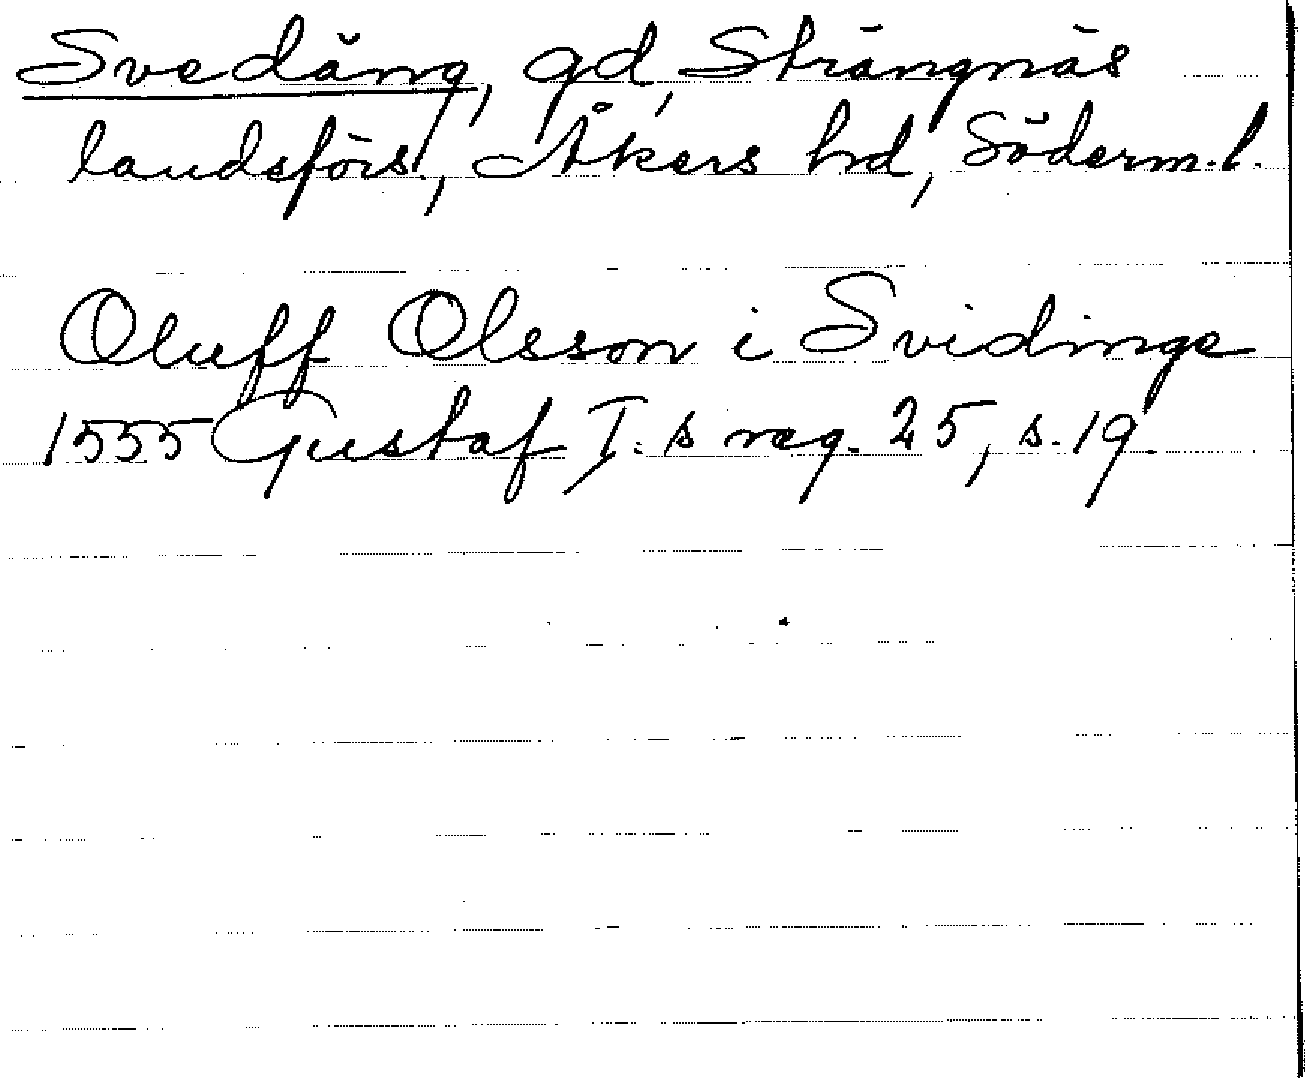 Svedäng, gd, Strängnäs
landsförs., Åkers hd, Söderm.l.
Oluff Olsson i Svidinge
1555 Gustaf I:s reg. 25, s. 19.